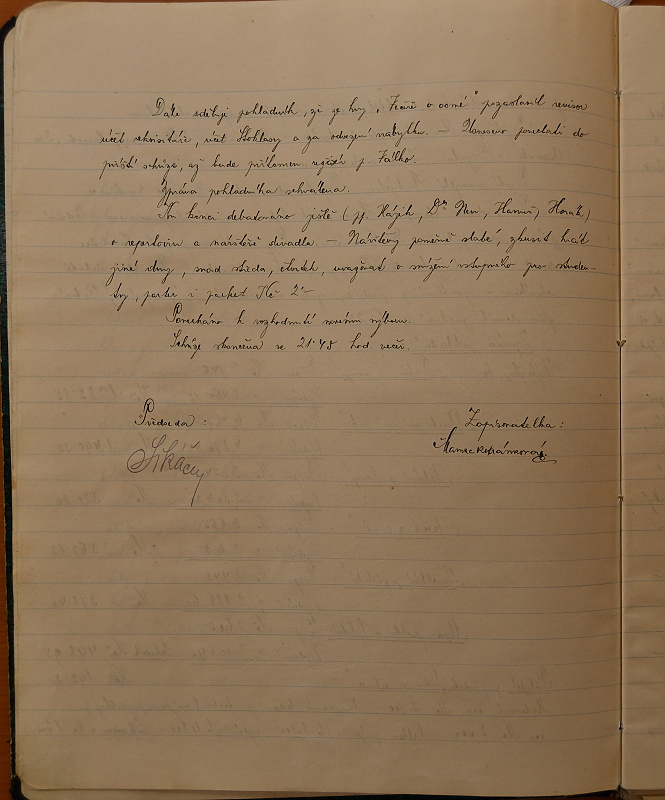 Dále sděluje pokladník, že ze hry „Tváře v domě" pozastavil revisor
účet rekvisitáře, účet Stoklasy a za odvezení nábytku. – Usneseno ponechati do
příští schůze, až bude přítomen režisér p. Falko.
Zpráva pokladníka schválena.
Ku konci debatováno ještě (pp. Hájek, Dr Neu, Hanuš, Horák)
o repertoiru a návštěvě divadla – Návštěvy poměrně slabé, zkusit hrát
jiné dny, snad středa, čtvrtek, uvažovat o snížení vstupného pro studen-
ty, parter i parket Kč 2·–
Ponecháno k rozhodnutí novému výboru.
Schůze skončena ve 21·45 hod. večer.
Předseda :
Zapisovatelka :